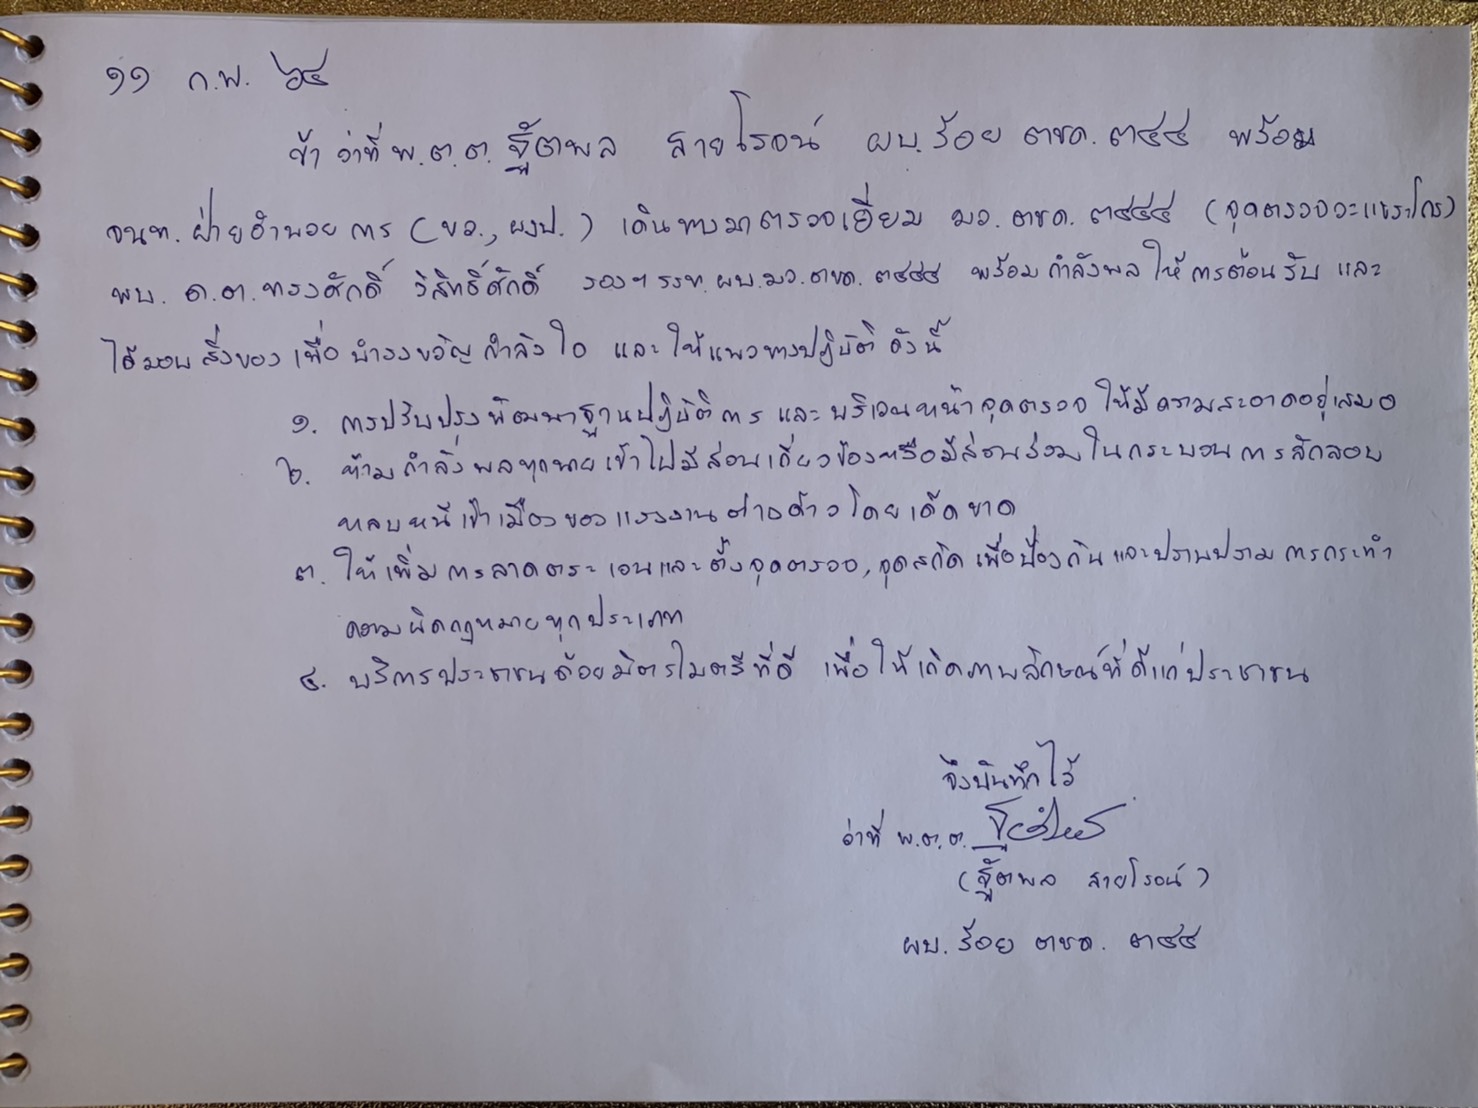 ๑๑ ก.พ. ๖๔
ข้า ว่าที่ พ.ต.ต. ฐิ้ตพล สายโรจน์ ผบ.ร้อย ตชด.๓๔๔ พร้อม
จนท.ฝ่ายอำนวยการ (ขว., ผงป.) เดินทางมาตรวจเยี่ยม มว.ตชด.๓๔๔๔ (จุดตรวจวะแขระโกร)
พบ ด.ต.ทรงศักดิ์ วิสิทธิ์ศักดิ์ รองฯ รรท.ผบ.มว.ตชด.๓๔๔๔ พร้อมกำลังพลให้การต้อนรับ และ
ได้มอบสิ่งของเพื่อบำรุงขวัญกำลังใจ และให้แนวทางปฏิบัติ ดังนี้
๑. การปรับปรุงพัฒนาฐานปฏิบัติการ และบริเวณหน้าจุดตรวจ ให้มีความสะอาดอยู่เสมอ
๒. ห้ามกำลังพลทุกนายเข้าไปมีส่วนเกี่ยวข้องหรือมีส่วนร่วมในกระบวนการลักลอบ
หลบหนีเข้าเมืองของแรงงานต่างด้าวโดยเด็ดขาด
๓. ให้เพิ่มการลาดตระเวนและตั้งจุดตรวจ, จุดสกัด เพื่อป้องกันและปราบปรามการกระทำ
ความผิดกฎหมายทุกประเภท
๔. บริการประชาชนด้วยมิตรไมตรีที่ดี เพื่อให้เกิดภาพลักษณ์ที่ดีแก่ประชาชน
จึงบันทึกไว้
ว่าที่ พ.ต.ต.
(ฐิ้ตพล สายโรจน์)
ผบ.ร้อย ตชด. ๓๔๔